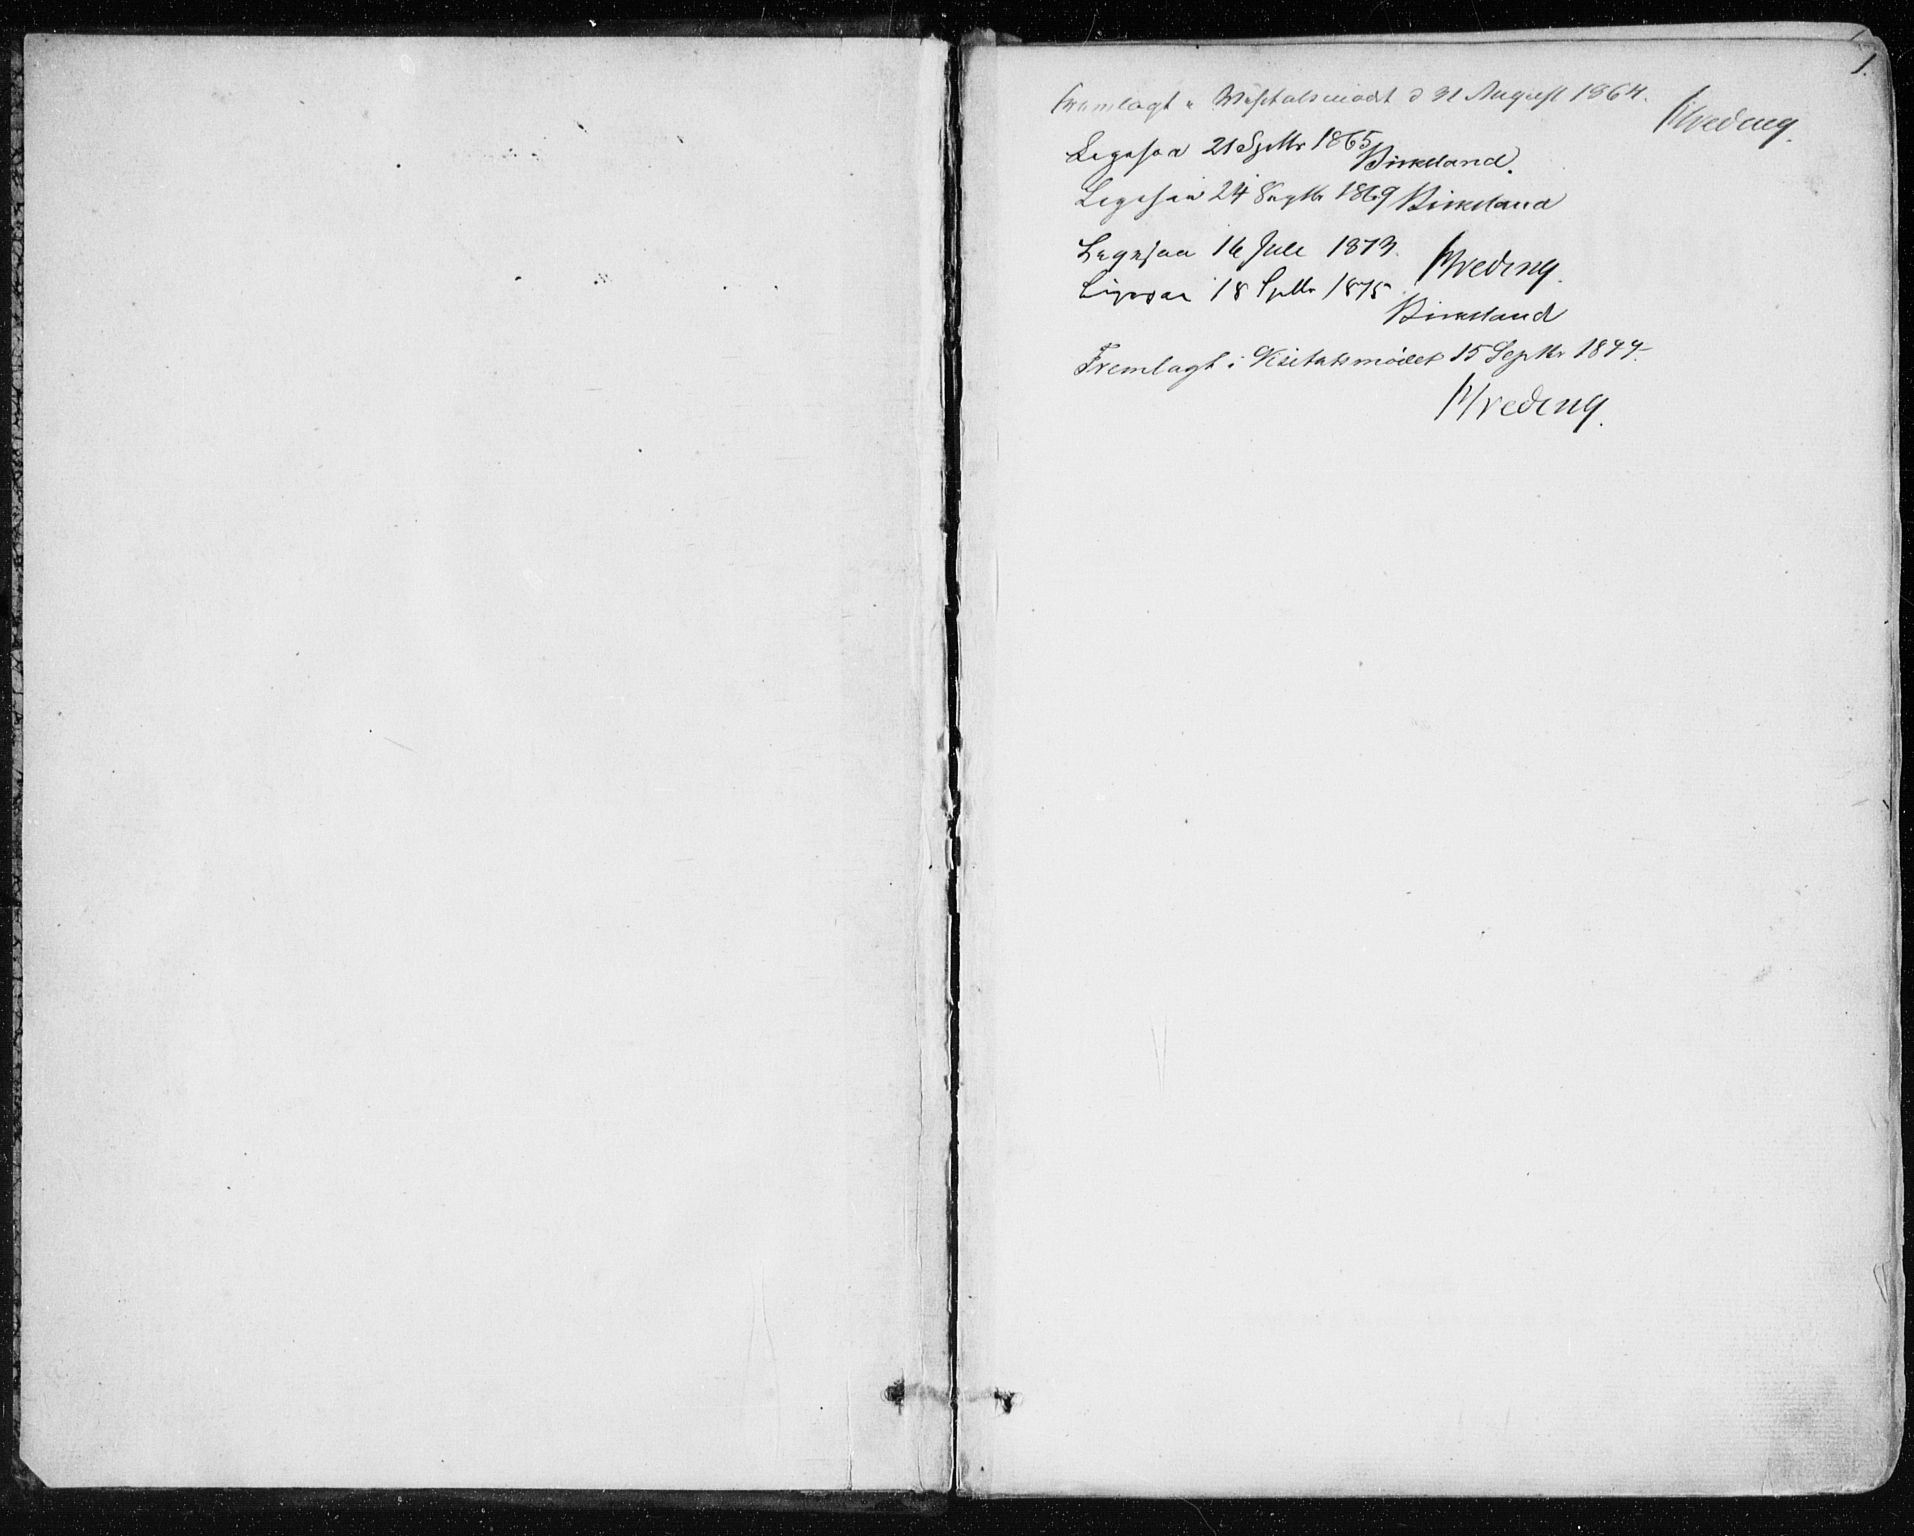 1.
Fremlagt i Visitatsmødet d 31 August 1864.
Arveding.
Ligesaa 21 Septbr 1865 Birkeland.
Ligesaa 24 Septbr 1869 Birkeland
Ligesaa 16 Juli 1873. Hveding.
Ligesaa 18 Septbr 1875
Birkeland
Fremlagt i Visitatsmødet 15 Septbr 1877.
Hveding.